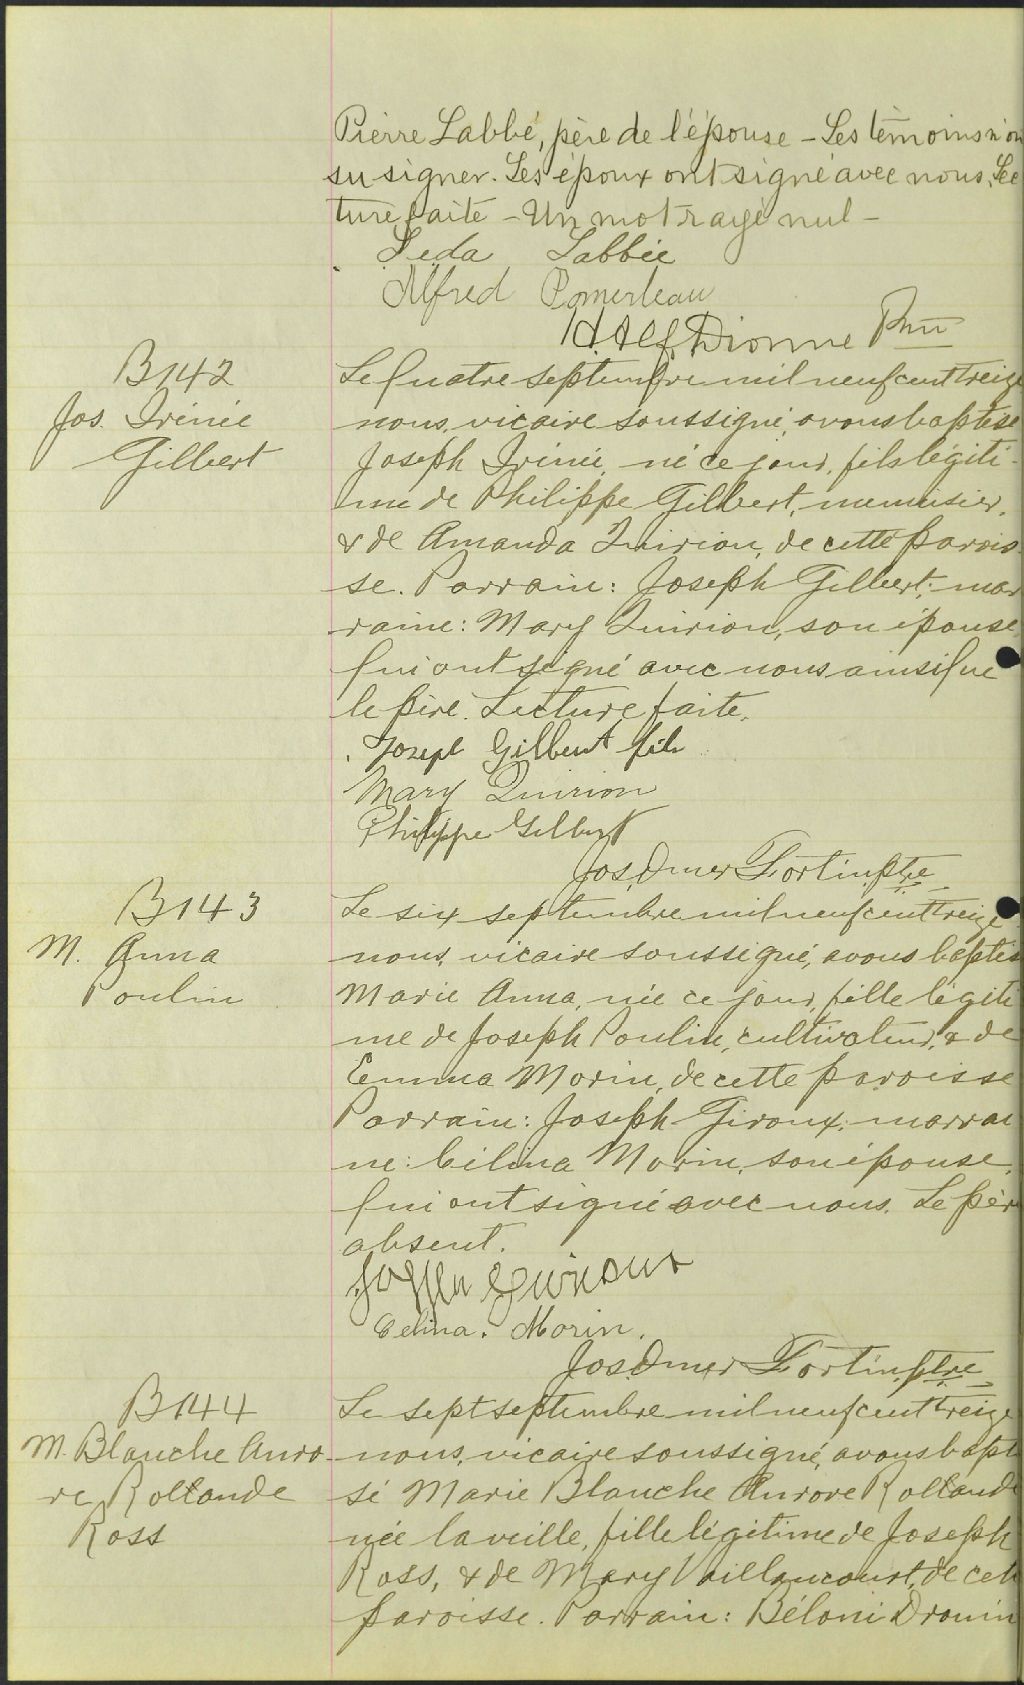 Pierre Labbé, père de l'épouse – Les témoins n'on
su signer. Les époux ont signé avec nous. Lec
ture faite – Un mot rayé nul –
Leda Labbée
Alfred Pomerleau
H. Alf. Dionne Ptre
B 142
Jos. Irénée
Gilbert
Le quatre septembre mil neuf cent treize
nous, vicaire soussigné, avons baptisé
Joseph Irénée, né ce jour, fils légiti-
me de Philippe Gilbert, menuisier,
& de Amanda Quirion, de cette parois-
se. Parrain: Joseph Gilbert; mar
raine: Mary Quirion, son épouse
qui ont signé avec nous ainsi que
le père. Lecture faite.
Joseph Gilbert fils
Mary Quirion
Philippe Gilbert
Jos. Omer Fortin, ptre
B 143
M. Anna
Poulin
Le six septembre mil neuf cent treize
nous, vicaire soussigné, avons baptis
Marie Anna, née ce jour, fille légiti
me de Joseph Poulin, cultivateur, & de
Emma Morin, de cette paroisse
Parrain: Joseph Giroux; marrai
ne: Célina Morin, son épouse,
qui ont signé avec nous. Le pèr
absent.
Joseph Giroux
Celina. Morin.
Jos. Omer Fortin, ptre
B 144
M. Blanche Auro-
re Rollande
Ross
Le sept septembre mil neuf cent treize
nous, vicaire soussigné, avons bapti
sé Marie Blanche Aurore Rollande
née la veille, fille légitime de Joseph
Ross, & de Mary Vaillancourt, de cett
paroisse. Parrain: Béloni Drouin